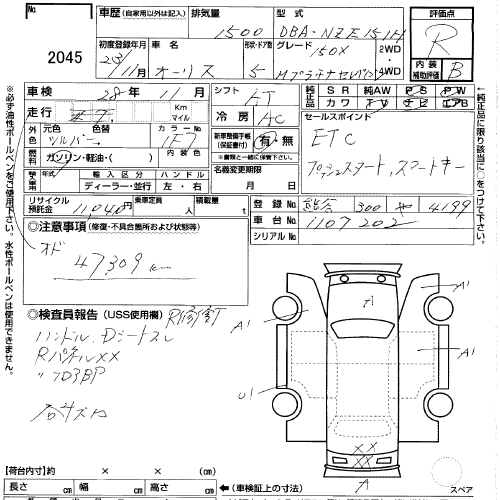 2045
車歴 (自家用以外は記入)
排気量
1500
型式
DBA-NZE151H
評価点
R
初度登録年月
23/11月
車名
オーリス
形状・ドア数
5
グレード
150X
Mプラチナセレクション
2WD
4WD
内装
補助評価
B
車検
28年 11月
シフト
AT
純正品
S R 純AW P S P W
カワ T V ナビ エアB
走行
Km
マイル
冷房
AC
セールスポイント
ETC
プッシュスタート, スマートキー
外色
元色
色替
シルバー
カラーNo
1F7
新車整備手帳
(保証書付)
有・無
※書類と一緒に保管下さい。
燃料
ガソリン・軽油・( )
内装色
名義変更期限
月 日
年式
輸入区分
ハンドル
ディーラー・並行
左・右
リサイクル
預託金
11,040円
乗車定員
人
積載量
t
登録No.
熊谷 300 や 4199
車台No.
1107202
シリアルNo.
◎注意事項 (修復・不具合箇所および状態等)
オド
47,309 km
◎検査員報告 (USS使用欄)
R修釘
ハンドル. Dシートスレ
RパネルXX
〃フロアBP
合キズ凹
A1
A1
A1
U1
XX
XX
A
【荷台内寸】約 × × (cm)
長さ cm 幅 cm 高さ cm
←(車検証上の寸法)
スペア
※必ず油性ボールペンをご使用下さい。水性ボールペンは使用できません。
←純正品に限り該当に○をつけて下さい。